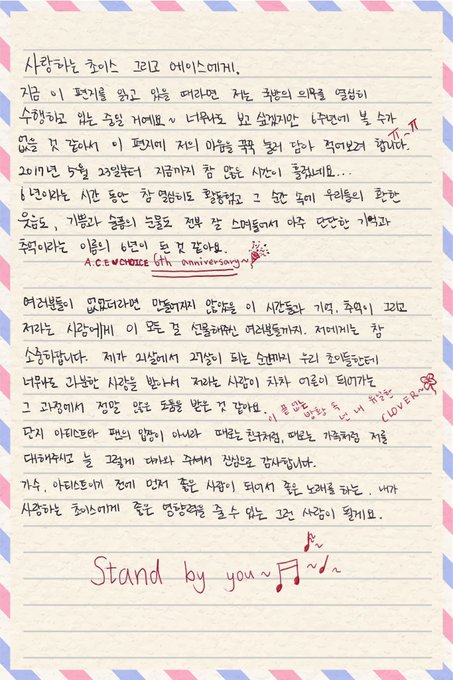 사랑하는 초이스 그리고 에이스에게.
지금 이 편지를 읽고 있을 때라면 저는 국방의 의무를 열심히
수행하고 있는 중일 거예요~ 너무나도 보고 싶겠지만 6주년에 볼 수가
없을 것 같아서 이 편지에 저의 마음을 꾹꾹 눌러 담아 적어보려 합니다. ㅠ~ㅠ
2017년 5월 23일부터 지금까지 참 많은 시간이 흘렀네요...
6년이라는 시간 동안 참 열심히도 활동했고 그 순간 속에 우리들의 환한
웃음도, 기쁨과 슬픔의 눈물도 전부 잘 스며들어서 아주 단단한 기억과
추억이라는 이름의 6년이 된 것 같아요.
A.C.E♥CHOICE 6th anniversary~
여러분들이 없었더라면 만들어지지 않았을 이 시간들과 기억, 추억이 그리고
저라는 사람에게 이 모든 걸 선물해주신 여러분들까지. 저에게는 참
소중하답니다. 제가 21살에서 27살이 되는 순간까지 우리 초이스들한테
너무나도 과분한 사랑을 받아서 저라는 사람이 차차 어른이 되어가는
그 과정에서 정말 많은 도움을 받은 것 같아요.
이 끝 없는 방황 속 넌 내 유일한 CLOVER~
단지 아티스트와 팬의 입장이 아니라 때로는 친구처럼, 때로는 가족처럼 저를
대해주시고 늘 그렇게 다가와 주셔서 진심으로 감사합니다.
가수, 아티스트이기 전에 먼저 좋은 사람이 되어서 좋은 노래를 하는, 내가
사랑하는 초이스에게 좋은 영향력을 줄 수 있는 그런 사람이 될게요.
Stand by you~